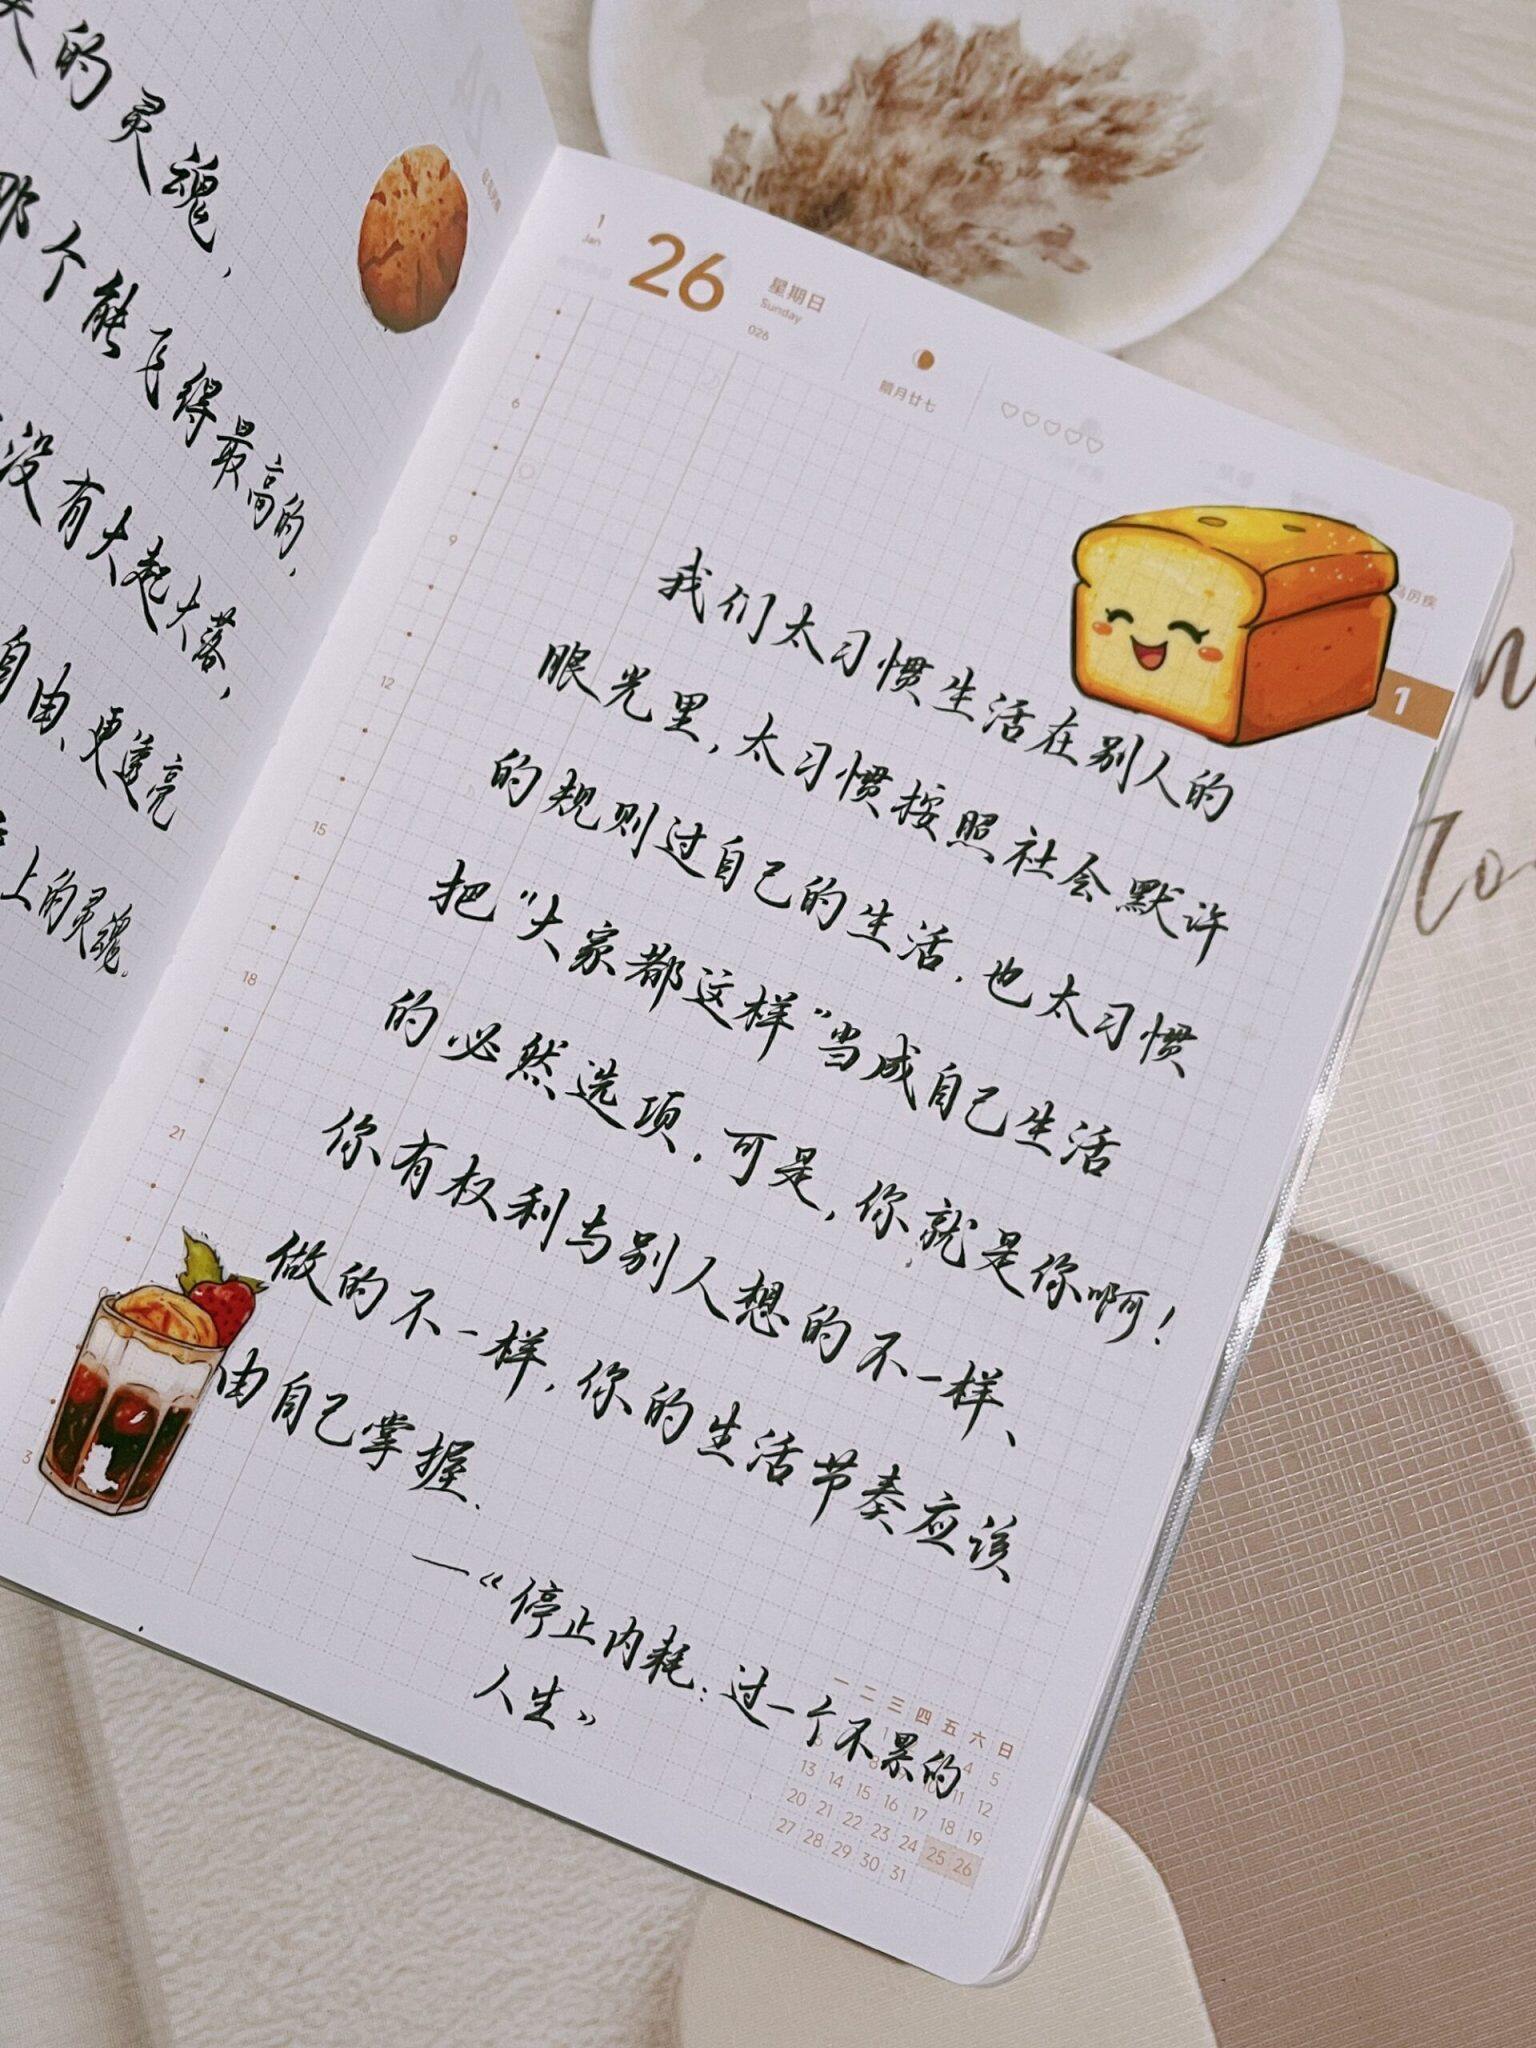 的灵魂，
那个能飞得最高的，
没有大起大落，
自由、更透亮
上的灵魂。
1
Jan
26
星期日
Sunday
026
腊月廿七
6
9
12
15
18
21
3
1
我们太习惯生活在别人的
眼光里，太习惯按照社会默许
的规则过自己的生活，也太习惯
把“大家都这样”当成自己生活
的必然选项，可是，你就是你啊！
你有权利与别人想的不一样、
做的不一样，你的生活节奏应该
由自己掌握．
—《停止内耗：过一个不累的
人生》
一 二 三 四 五 六 日
1 4 5
8 9 10 11 12
13 14 15 16 17 18 19
20 21 22 23 24 25 26
27 28 29 30 31